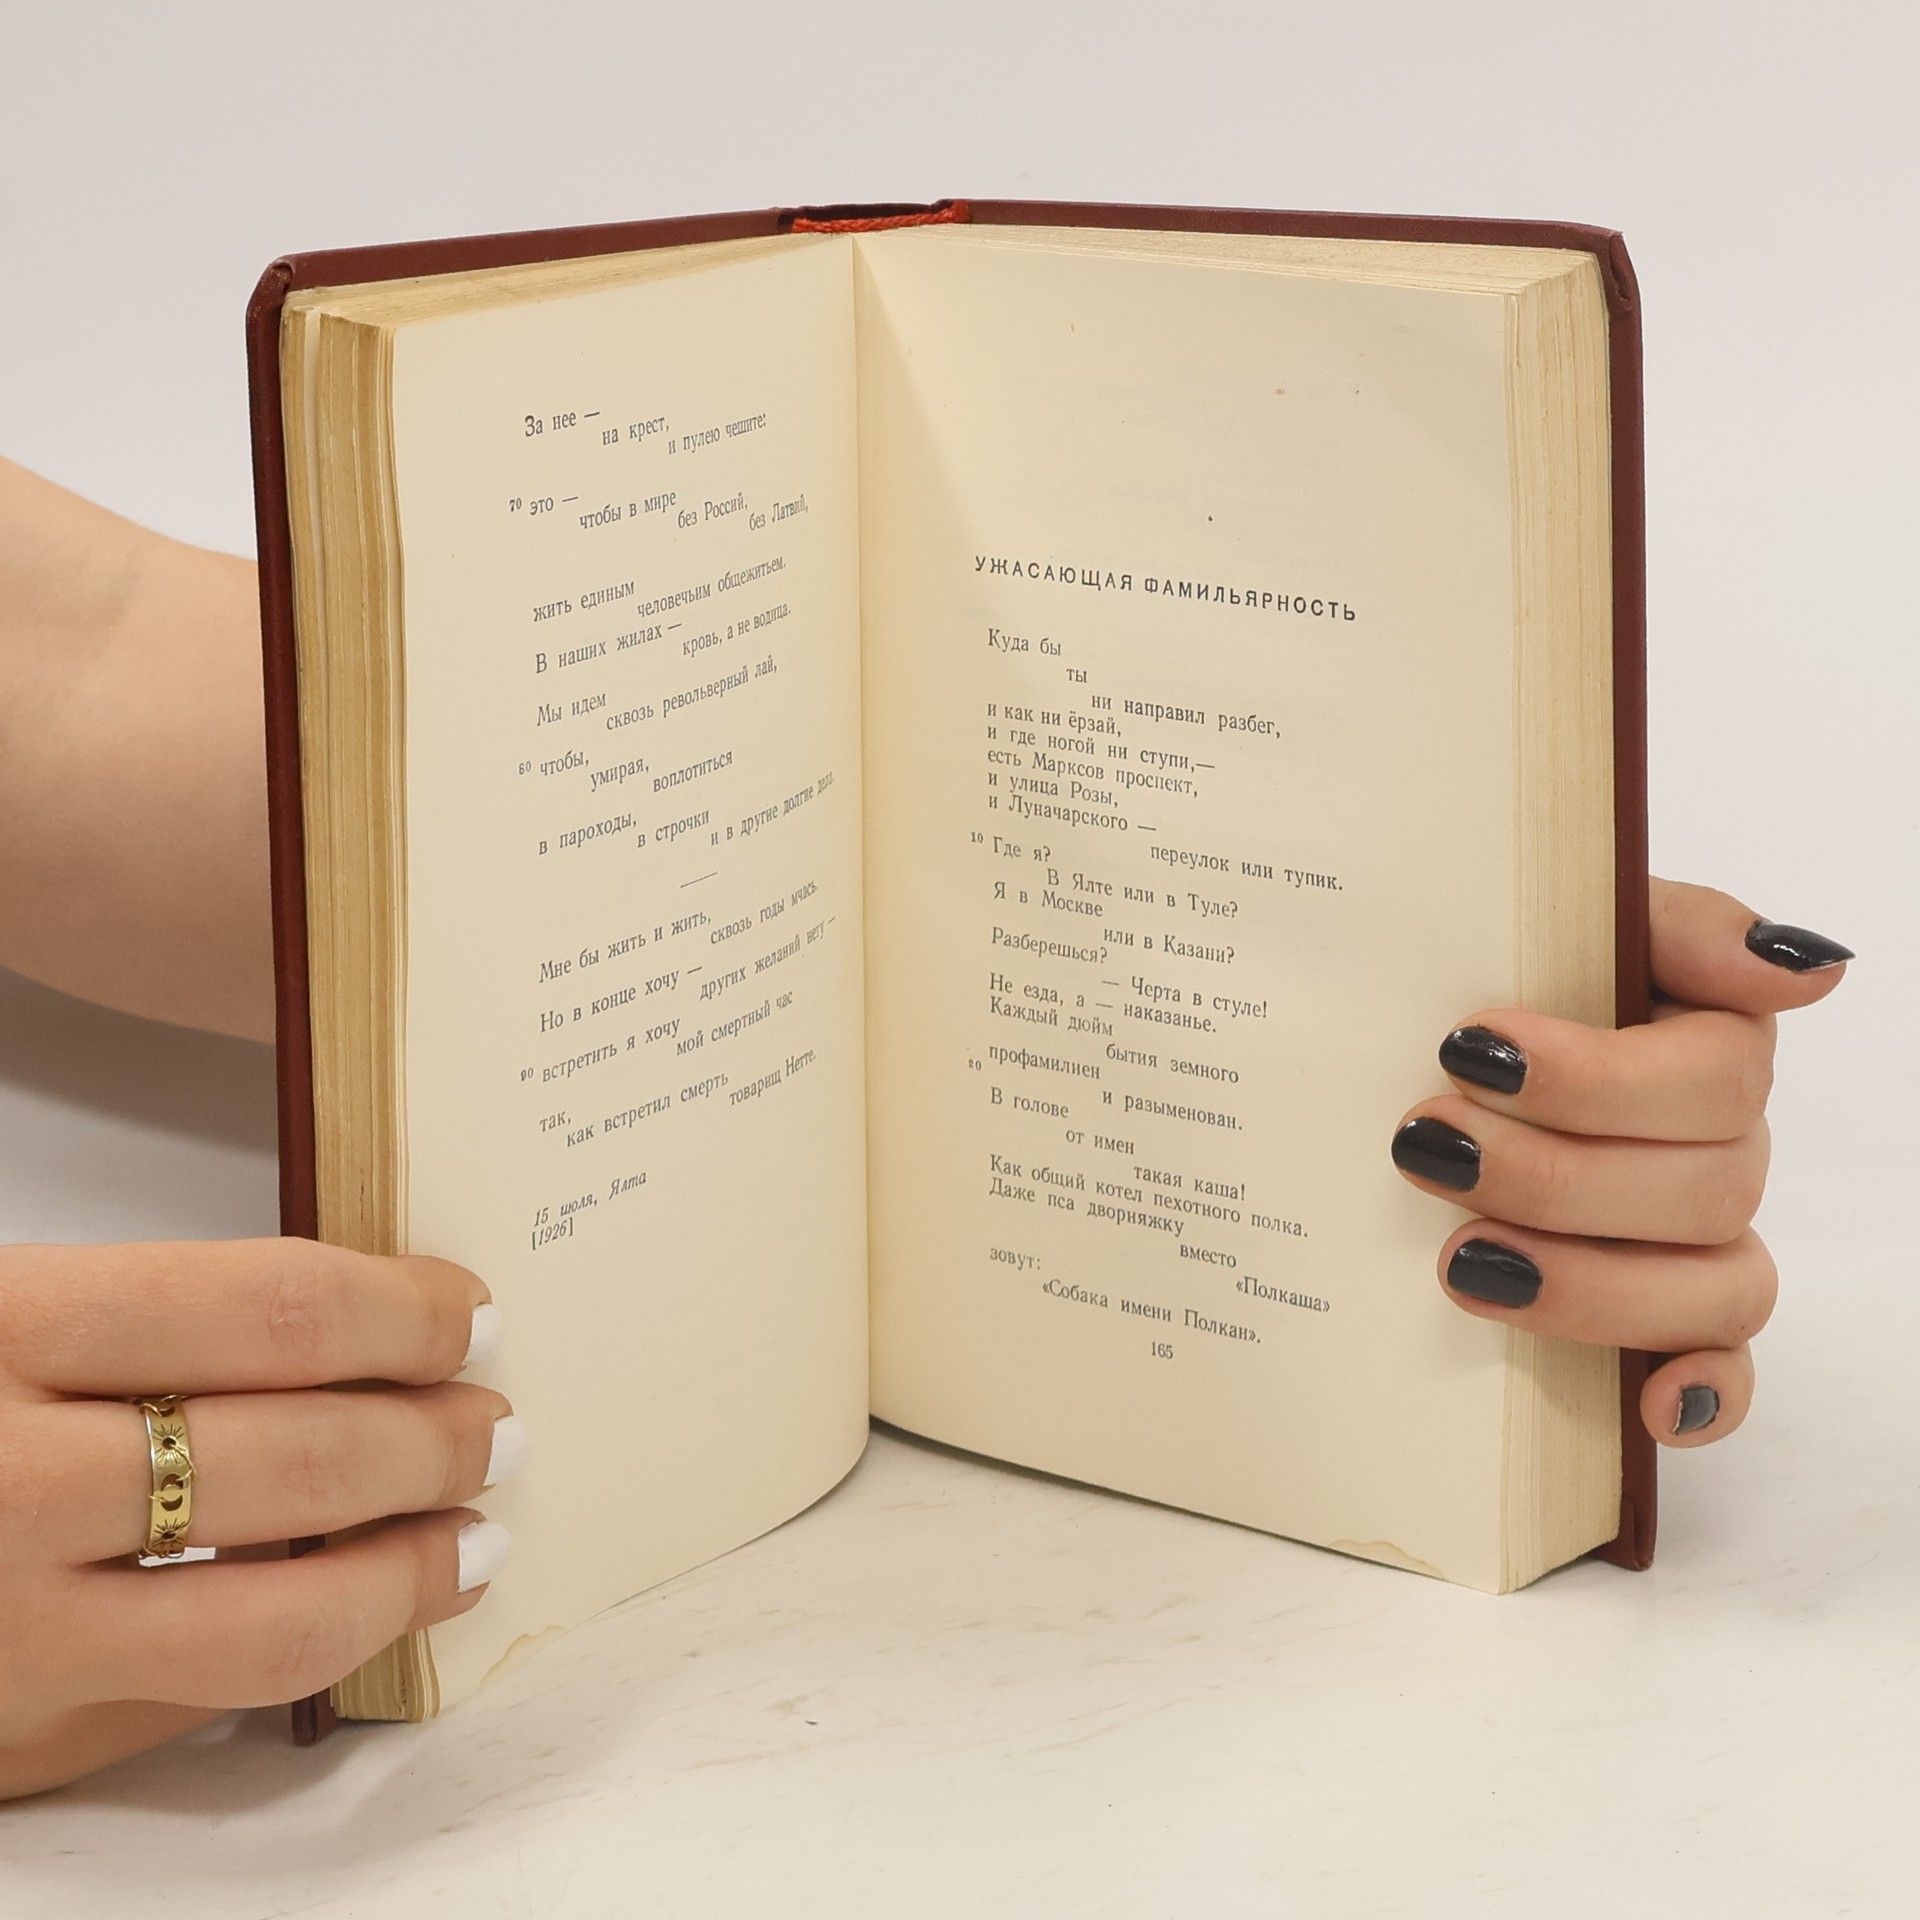 За нее —
на крест,
и пулею чешите:
70 это —
чтобы в мире
без Россий,
без Латвий,
жить единым
человечьим общежитьем.
В наших жилах —
кровь, а не водица.
Мы идем
сквозь револьверный лай,
80 чтобы,
умирая,
воплотиться
в пароходы,
в строчки
и в другие долгие дела.
Мне бы жить и жить,
сквозь годы мчась.
Но в конце хочу —
других желаний нету —
90 встретить я хочу
мой смертный час
так,
как встретил смерть
товарищ Нетте.
15 июля, Ялта
[1926]
УЖАСАЮЩАЯ ФАМИЛЬЯРНОСТЬ
Куда бы
ты
ни направил разбег,
и как ни ёрзай,
и где ногой ни ступи,—
есть Марксов проспект,
и улица Розы,
и Луначарского —
переулок или тупик.
10 Где я?
В Ялте или в Туле?
Я в Москве
или в Казани?
Разберешься?
— Черта в стуле!
Не езда, а — наказанье.
Каждый дюйм
бытия земного
20 профамилиен
и разыменован.
В голове
от имен
такая каша!
Как общий котел пехотного полка.
Даже пса дворняжку
вместо
«Полкаша»
зовут:
«Собака имени Полкан».
165